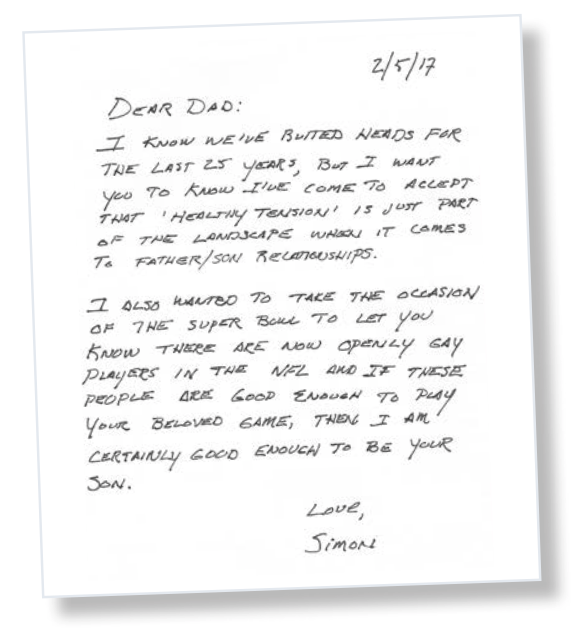 2/5/17
DEAR DAD:
I KNOW WE'VE BUTTED HEADS FOR
THE LAST 25 YEARS, BUT I WANT
YOU TO KNOW I'VE COME TO ACCEPT
THAT 'HEALTHY TENSION' IS JUST PART
OF THE LANDSCAPE WHEN IT COMES
TO FATHER/SON RELATIONSHIPS.
I ALSO WANTED TO TAKE THE OCCASION
OF THE SUPER BOWL TO LET YOU
KNOW THERE ARE NOW OPENLY GAY
PLAYERS IN THE NFL AND IF THESE
PEOPLE ARE GOOD ENOUGH TO PLAY
YOUR BELOVED GAME, THEN I AM
CERTAINLY GOOD ENOUGH TO BE YOUR
SON.
LOVE,
SIMON